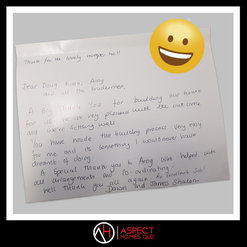 Thank for the lovely hamper too!!
Dear Doug, Ross, Amy
and all the tradesmen,
A Big Thank You for building our home
for us. We are very pleased with the outcome
and we're settling well.
You have made the building process very easy
for me and its something I would never have
dreamt of doing.
A Special Thank you to Amy who helped with
all arrangements and co-ordinating.
Well Thank you all again. An Excellent Job!
Dawn and James
ASPECT
HOMES QLD